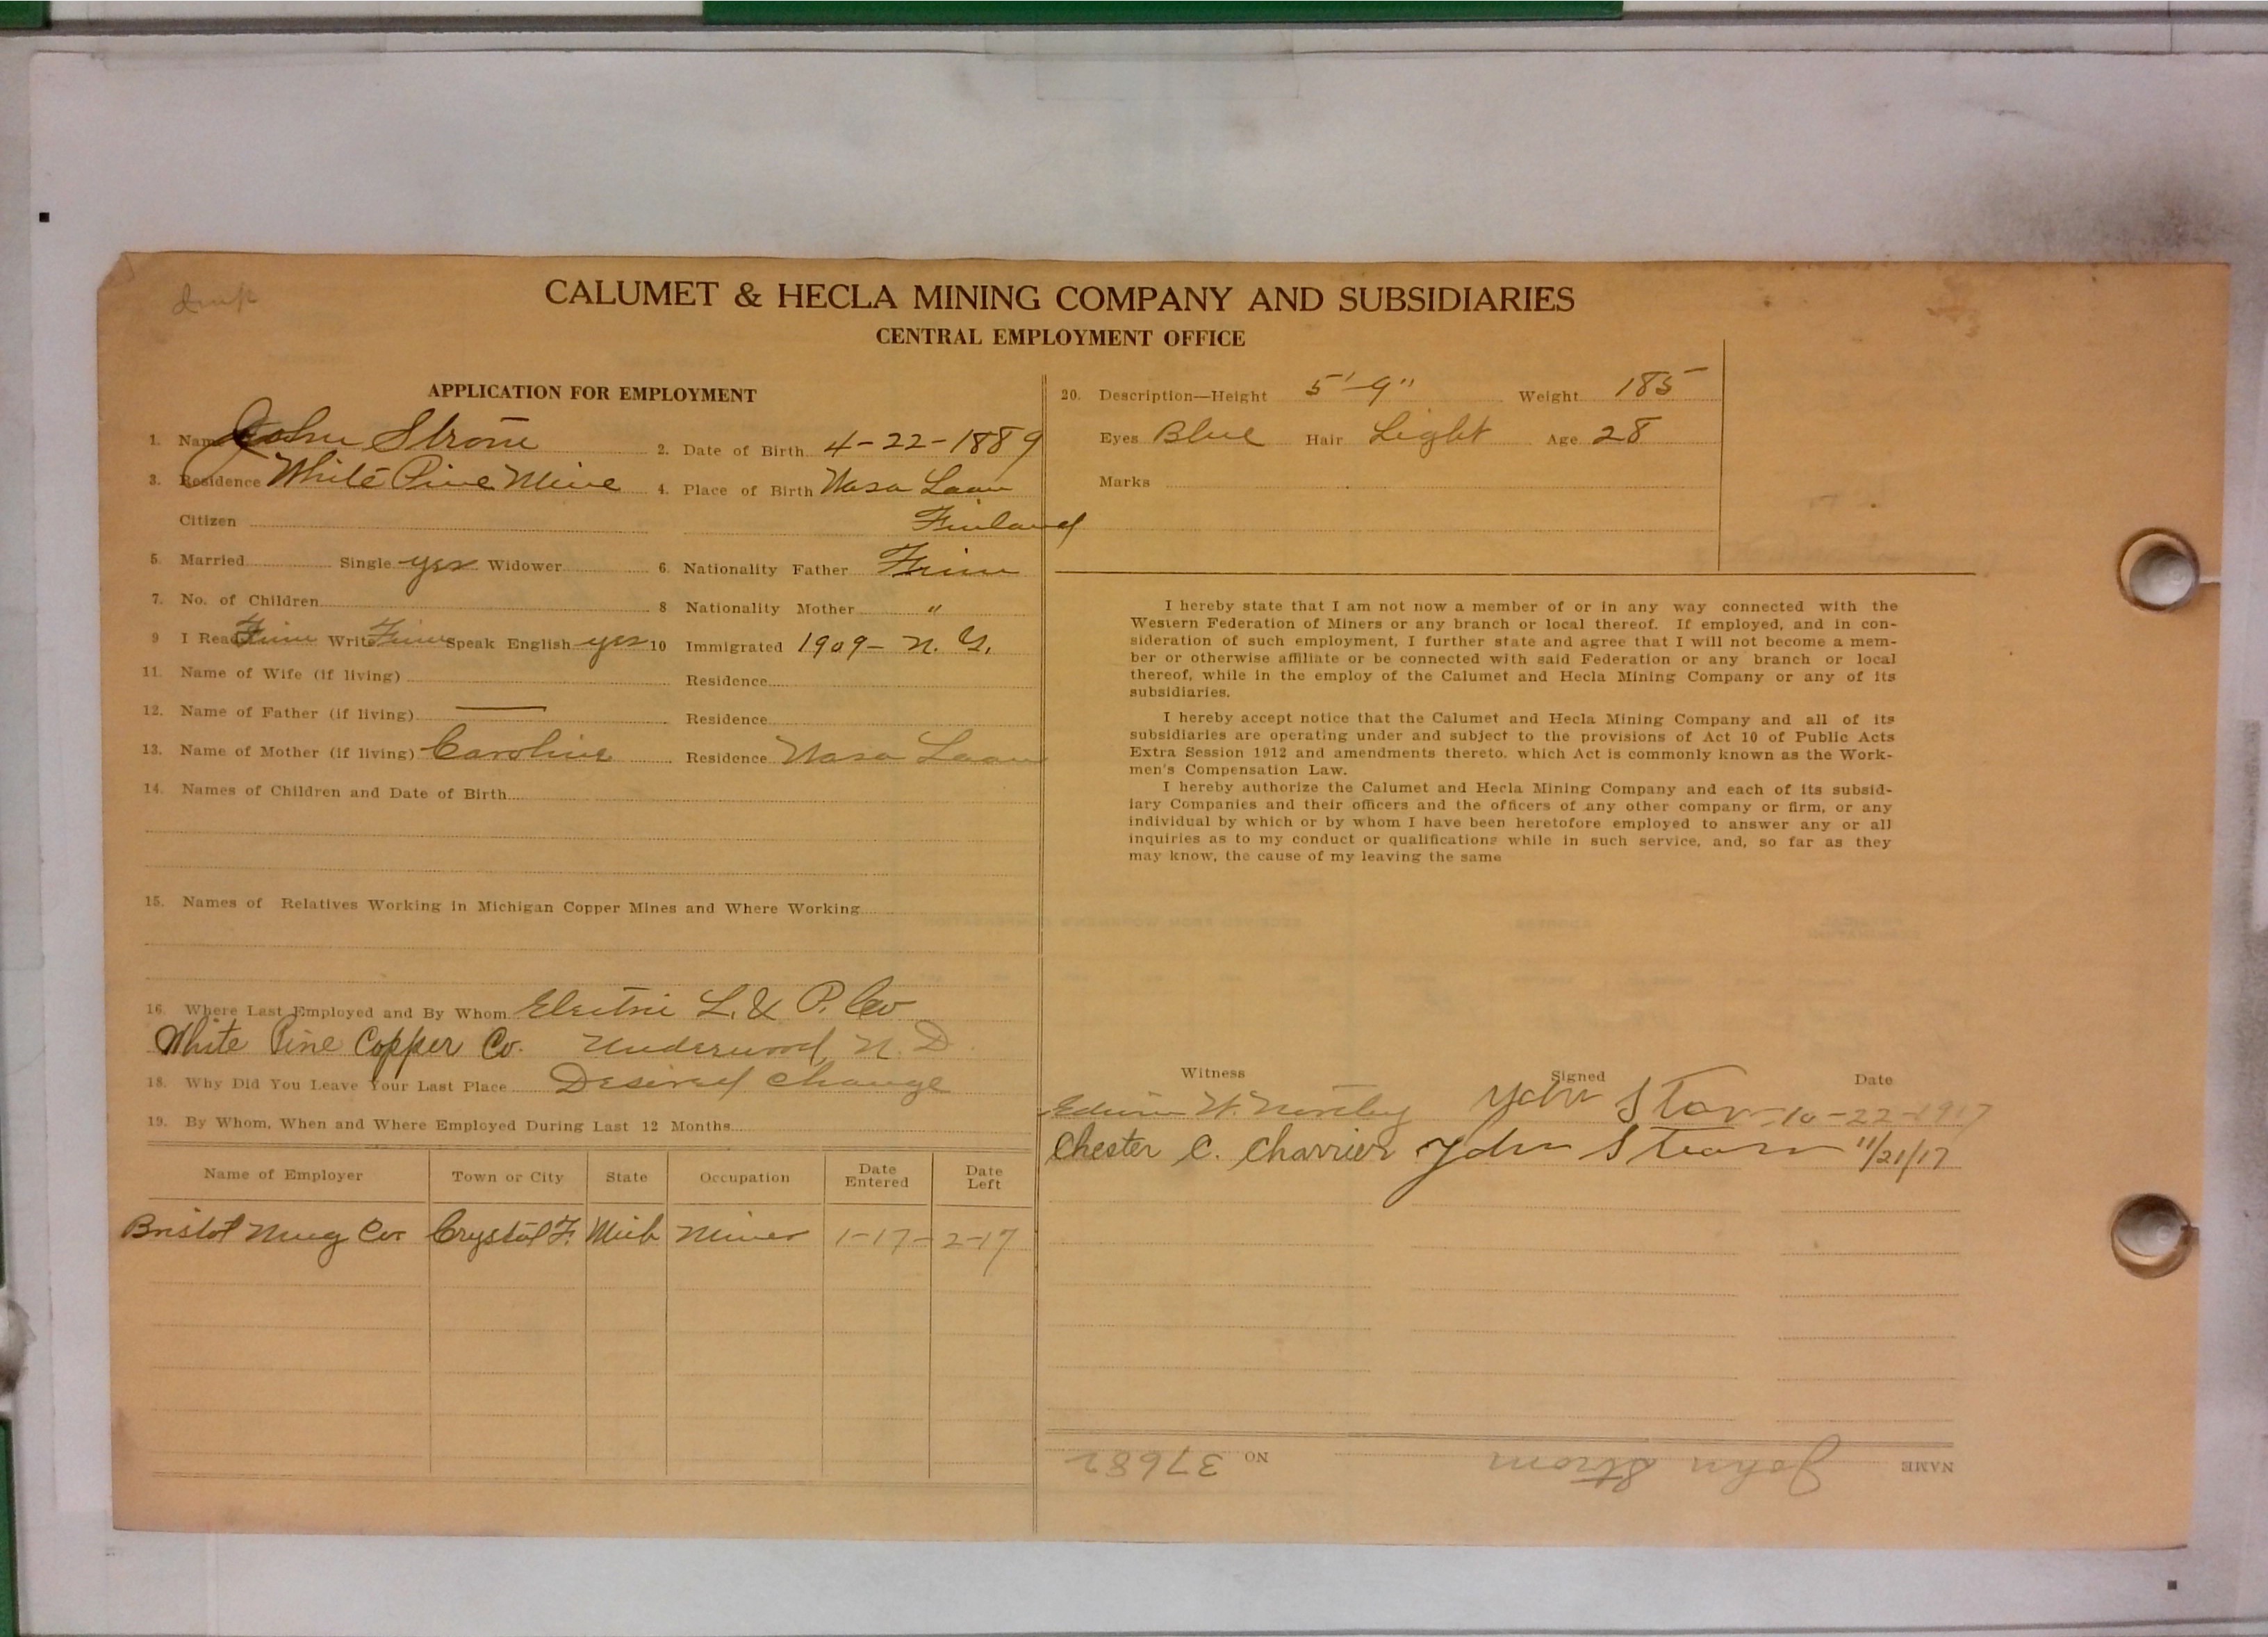 CALUMET & HECLA MINING COMPANY AND SUBSIDIARIES
CENTRAL EMPLOYMENT OFFICE
APPLICATION FOR EMPLOYMENT
1. Name John Strom
2. Date of Birth 4-22-1889
3. Residence White Pine Mine
4. Place of Birth Wasa Laan
Citizen
Finland
5. Married Single yes Widower
6. Nationality Father Finn
7. No. of Children
8 Nationality Mother "
9 I Read Finn Write Finn Speak English yes
10 Immigrated 1909- N. Y.
11. Name of Wife (if living)
Residence
12. Name of Father (if living) —
Residence
13. Name of Mother (if living) Caroline
Residence Wasa Laan
14. Names of Children and Date of Birth
15. Names of Relatives Working in Michigan Copper Mines and Where Working
16. Where Last Employed and By Whom Electric L. & P. Co
White Pine Copper Co. Underwood, N. D.
18. Why Did You Leave Your Last Place Desired change
19. By Whom, When and Where Employed During Last 12 Months
Name of Employer Town or City State Occupation Date Entered Date Left
Bristol Mng Co Crystal F. Mich Miner 1-17- 2-17
20. Description—Height 5'-9" Weight 185
Eyes Blue Hair Light Age 28
Marks
I hereby state that I am not now a member of or in any way connected with the
Western Federation of Miners or any branch or local thereof. If employed, and in con-
sideration of such employment, I further state and agree that I will not become a mem-
ber or otherwise affiliate or be connected with said Federation or any branch or local
thereof, while in the employ of the Calumet and Hecla Mining Company or any of its
subsidiaries.
I hereby accept notice that the Calumet and Hecla Mining Company and all of its
subsidiaries are operating under and subject to the provisions of Act 10 of Public Acts
Extra Session 1912 and amendments thereto, which Act is commonly known as the Work-
men's Compensation Law.
I hereby authorize the Calumet and Hecla Mining Company and each of its subsid-
iary Companies and their officers and the officers of any other company or firm, or any
individual by which or by whom I have been heretofore employed to answer any or all
inquiries as to my conduct or qualifications while in such service, and, so far as they
may know, the cause of my leaving the same
Witness Signed Date
Edwin W. 10-22-1917
Chester C. Charrier John Strom 11/21/17
NAME John Strom NO 37682